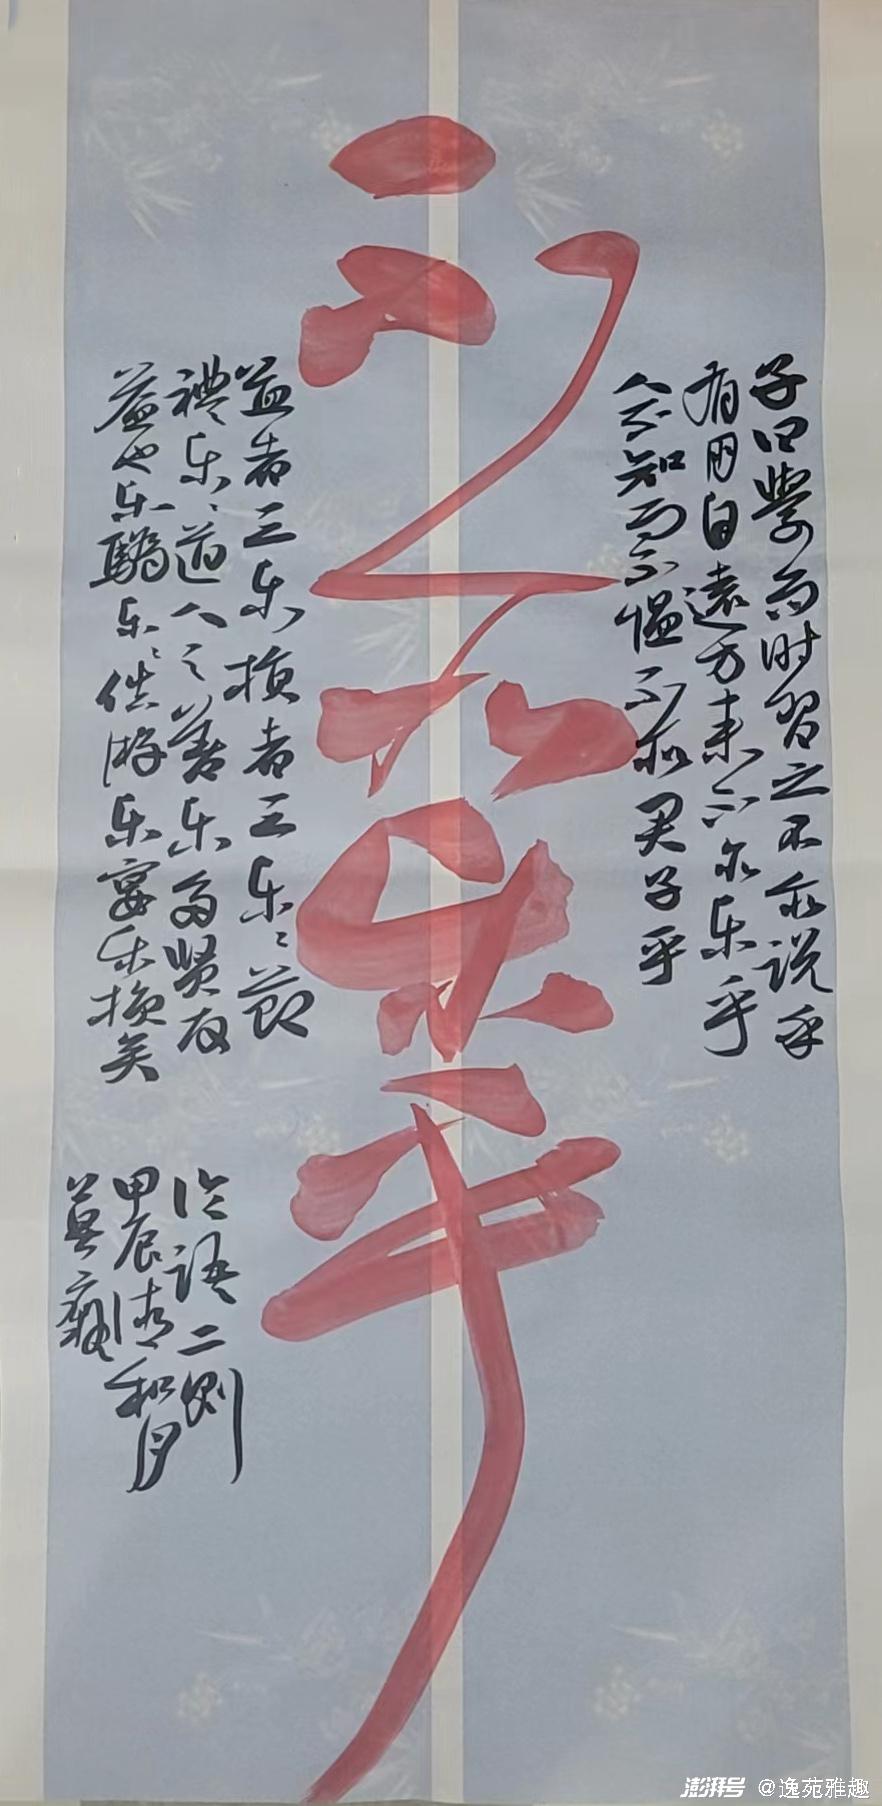 不亦乐乎
子曰學而时習之不亦说乎
有朋自遠方来不亦乐乎
人不知而不愠不亦君子乎
益者三乐损者三乐乐节
禮乐乐道人之善乐多贤友
益也乐驕乐乐佚游乐宴乐损矣
论语二则
甲辰清和月
澎湃号 @逸苑雅趣